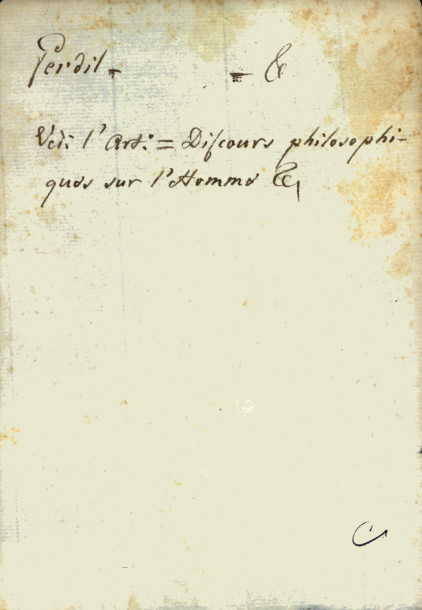 Gerdil - - &
Vedi l'Art: = Discours philosophi-
ques sur l'Homme &c,
C